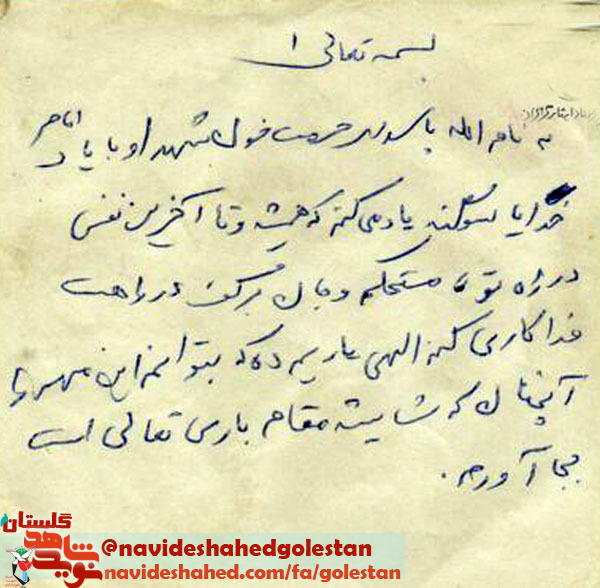 بسمه تعالی
به نام الله پاسدار حرمت خون شهدا و با یاد امام
خدایا سوگند یاد می کنم که همیشه و تا آخرین نفس
در راه تو مستحکم و جان بر کف در راهت
فداکاری کنم الهی یاریم ده که بتوانم این مهم را
آنچنان که شایسته مقام باری تعالی است
بجا آورم.
گلستان
نوید شاهد
@navideshahedgolestan
navideshahed.com/fa/golestan